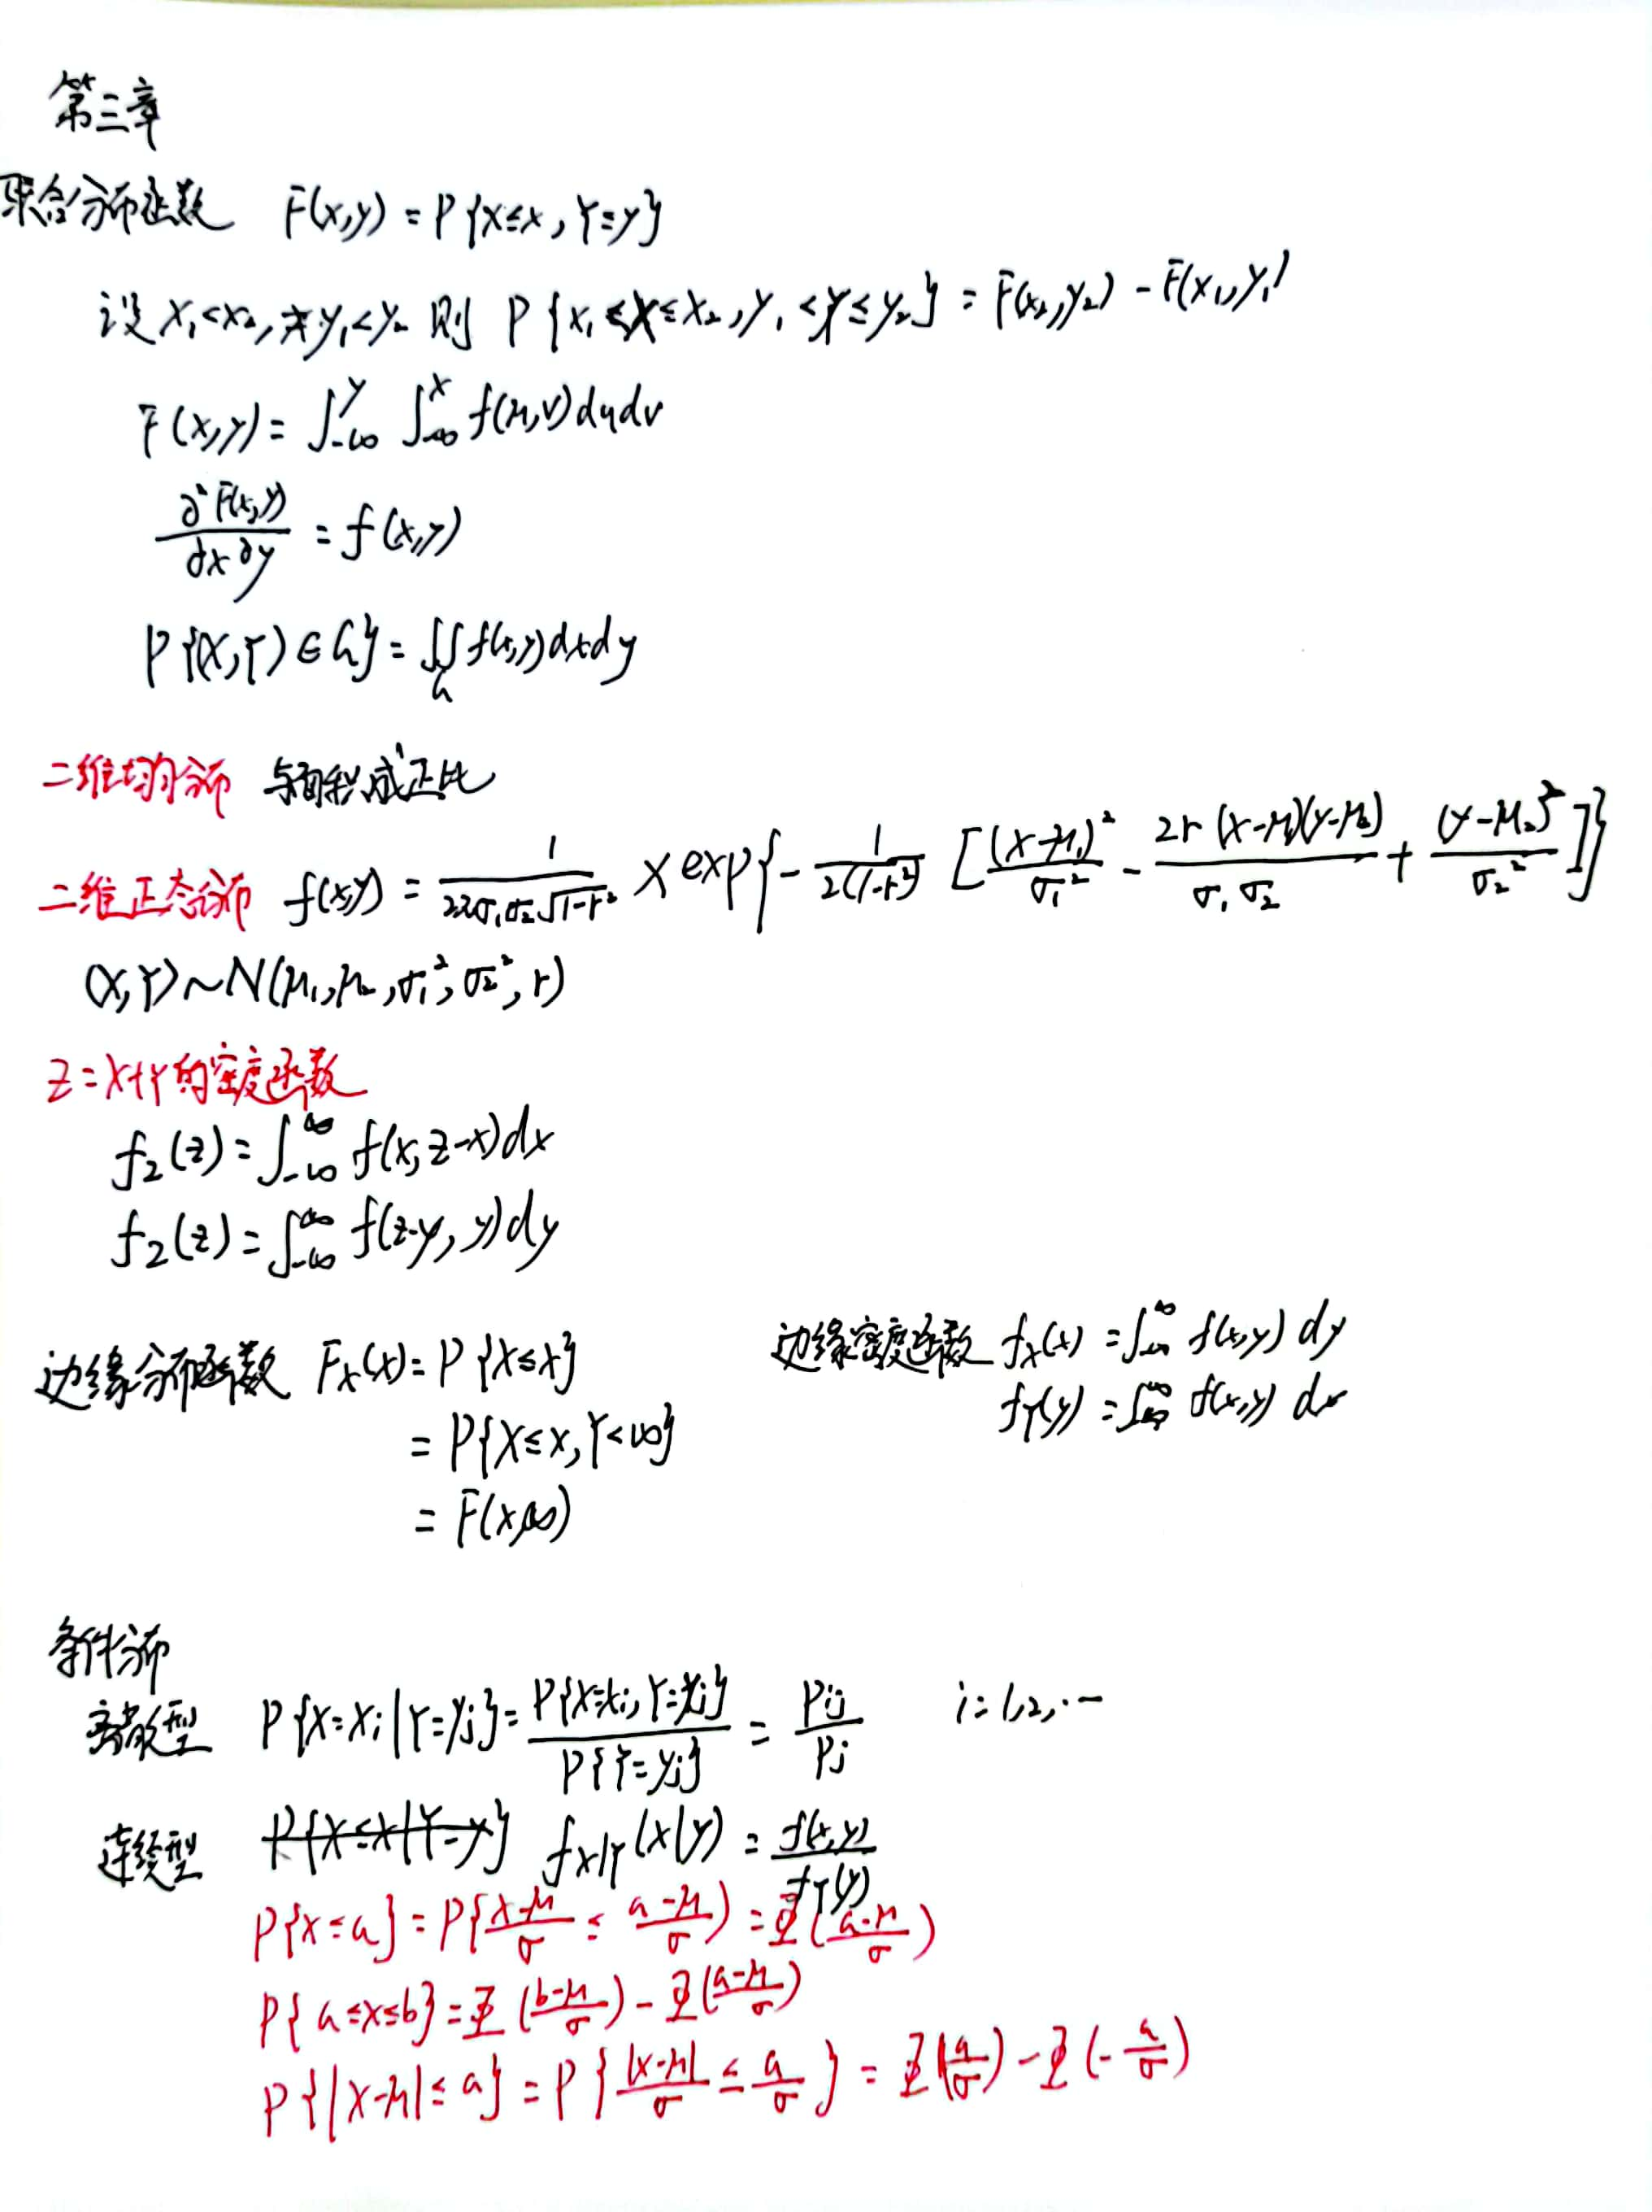 第三章
联合分布函数 F(x,y) = P{X≤x, Y=y}
设 x₁<x₂, y₁<y₂ 则 P{x₁≤X≤x₂, y₁<Y≤y₂} = F(x₂,y₂) - F(x₁,y₁)
F(x,y) = ∫_{-∞}^{y} ∫_{-∞}^{x} f(u,v)dudv
∂²F(x,y)/∂x∂y = f(x,y)
P{(X,Y)∈G} = ∬_G f(x,y)dxdy
二维均匀分布 与面积成正比
二维正态分布 f(x,y) = 1/(2πσ₁σ₂√(1-r²)) × exp{-1/(2(1-r²)) [(x-μ₁)²/σ₁² - 2r(x-μ₁)(y-μ₂)/(σ₁σ₂) + (y-μ₂)²/σ₂²]}
(X,Y)~N(μ₁,μ₂,σ₁²,σ₂²,r)
Z=X+Y的密度函数
f_Z(z) = ∫_{-∞}^{∞} f(x,z-x)dx
f_Z(z) = ∫_{-∞}^{∞} f(z-y,y)dy
边缘分布函数 F_X(x) = P{X≤x}
= P{X≤x, Y<∞}
= F(x,∞)
边缘密度函数 f_X(x) = ∫_{-∞}^{∞} f(x,y) dy
f_Y(y) = ∫_{-∞}^{∞} f(x,y) dx
条件分布
离散型 P{X=xᵢ|Y=yⱼ} = P{X=xᵢ,Y=yⱼ}/P{Y=yⱼ} = Pᵢⱼ/Pⱼ i=1,2,…
连续型 P{X≤x|Y=y} f_{X|Y}(x|y) = f(x,y)/f_Y(y)
P{X≤a} = P{(X-μ)/σ ≤ (a-μ)/σ) = Φ((a-μ)/σ)
P{a≤X≤b} = Φ((b-μ)/σ) - Φ((a-μ)/σ)
P{|X-μ|≤a} = P{|X-μ|/σ ≤ a/σ} = Φ(a/σ) - Φ(-a/σ)